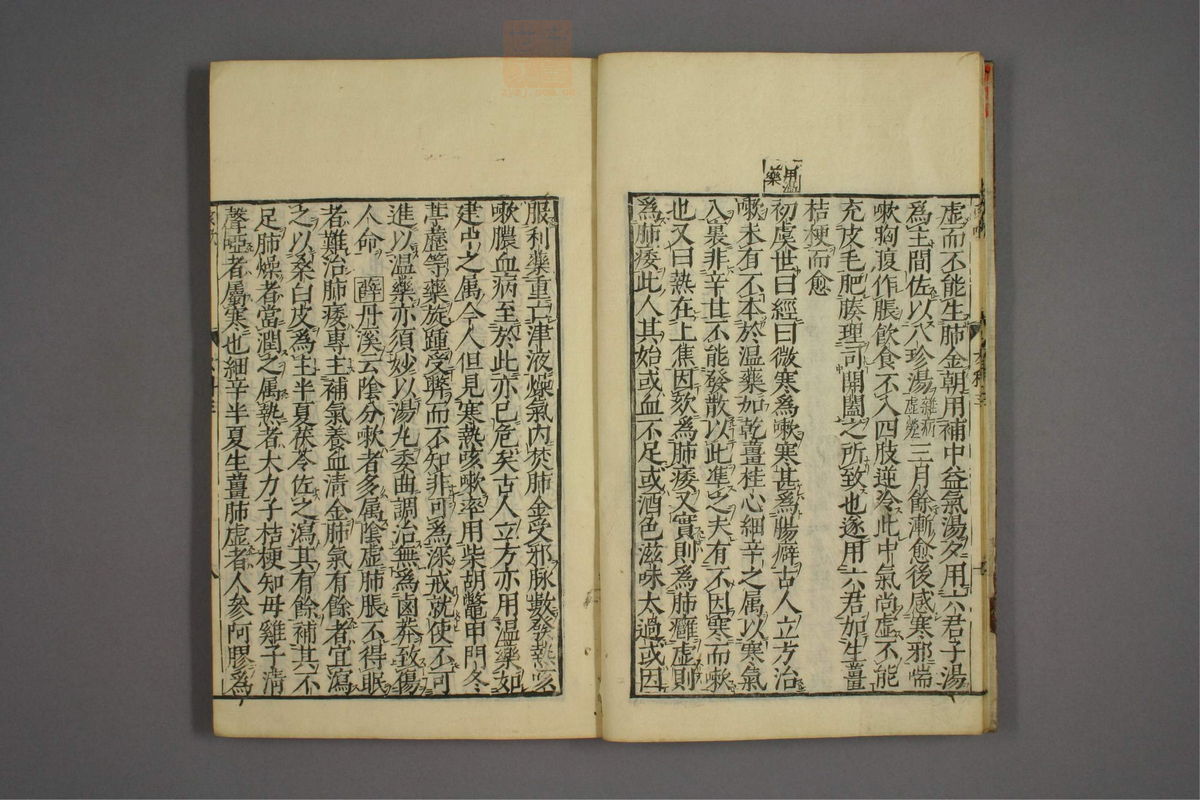 虚而不能生肺金朝用補中益氣湯夕用六君子湯
爲主間佐以八珍湯三月餘漸愈後感寒邪喘
嗽胸腹作脹飲食不入四肢逆冷此中氣尚虚不能
充皮毛肥腠理司開闔之所致也遂用六君加生薑
桔梗而愈
用藥
初虞世曰經曰微寒爲嗽寒甚爲腸癖古人立方治
嗽未有不本於温藥如乾薑桂心細辛之属以寒氣
入裏非辛甘不能發散以此準之夫有不因寒而嗽
也又曰熱在上焦因欬爲肺痿又實則爲肺癰虚則
爲肺痿此人其始或血不足或酒色滋味太過或因
服利藥重亡津液燥氣内焚肺金受邪脉數發熱咳
嗽膿血病至於此亦已危矣古人立方亦用温藥如
建中之属今人但見寒熱咳嗽率用柴胡鼈甲門冬
葶藶等藥旋踵受弊而不知非可爲深戒就使不可
進以温藥亦須妙以湯丸委曲調治無爲鹵莽致傷
人命 薛 丹溪云陰分嗽者多属陰虚肺脹不得眠
者難治肺痿專主補氣養血清金肺氣有餘者宜瀉
之以桑白皮爲主半夏茯苓佐之瀉其有餘補其不
足肺燥者當潤之属熱者大力子桔梗知母雞子清
聲啞者屬寒也細辛半夏生薑肺虚者人參阿膠爲